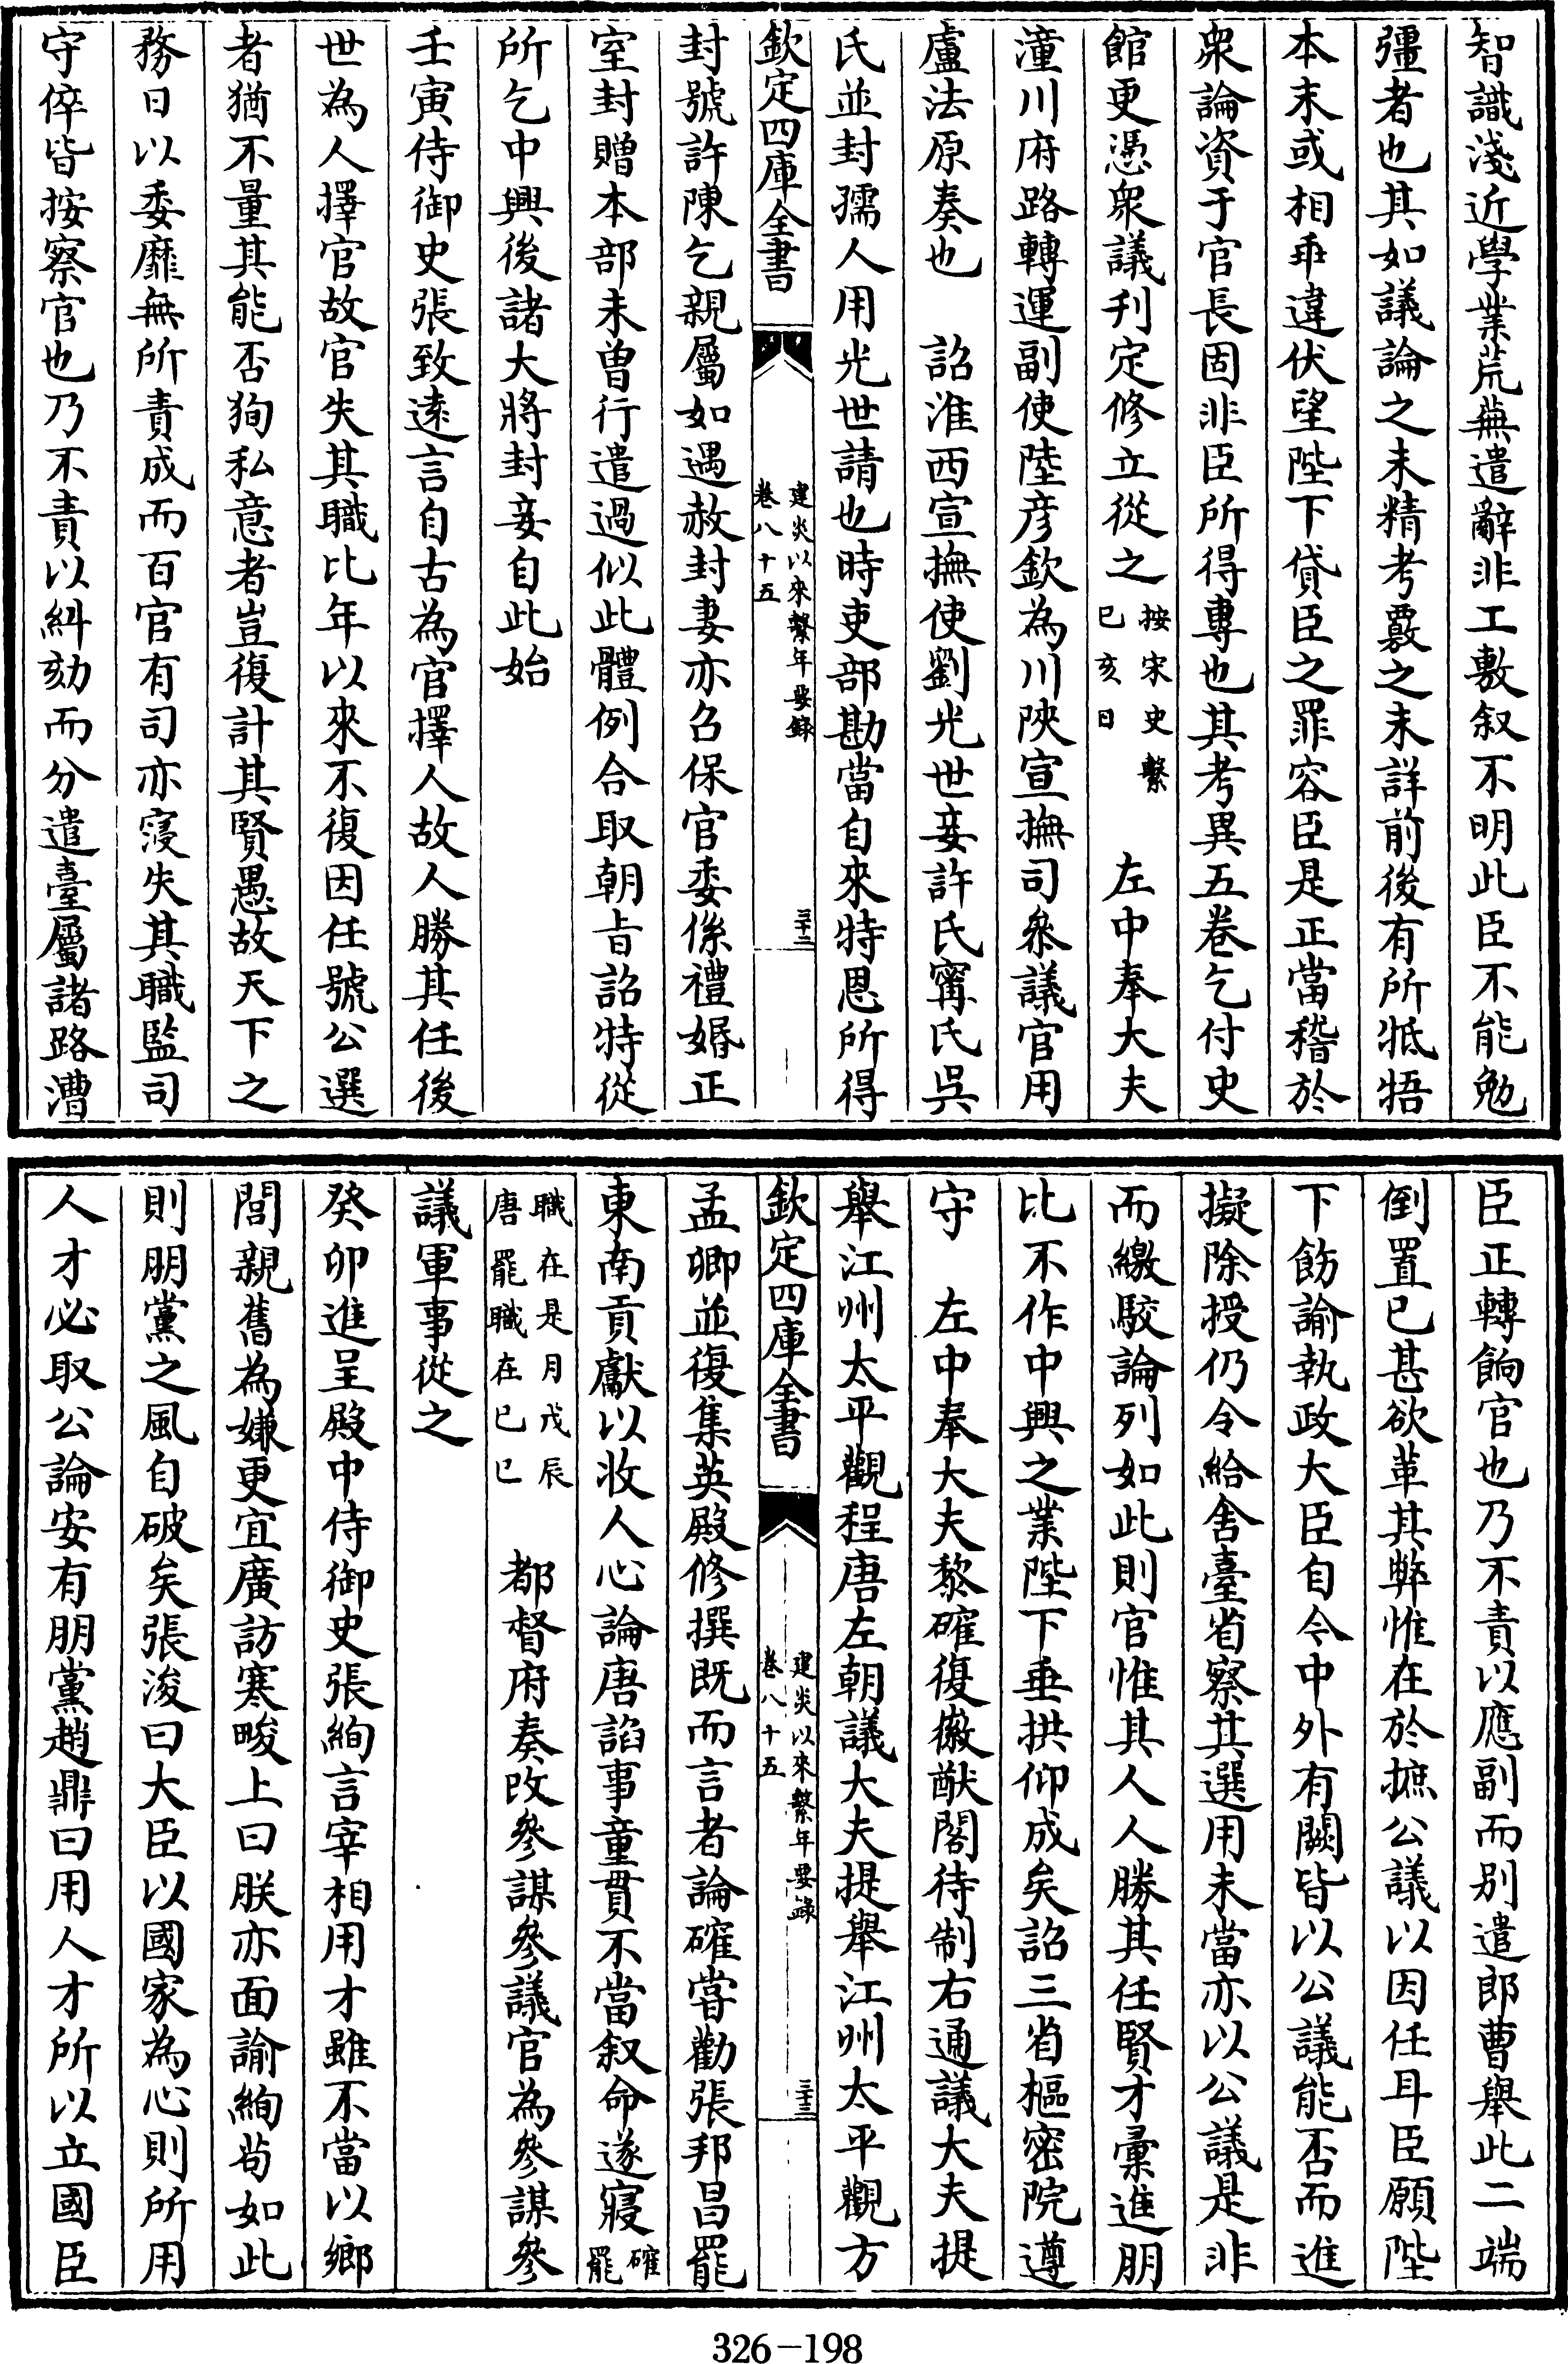 智識淺近學業荒蕪遣辭非工敷叙不明此臣不能勉
彊者也其如議論之未精考覈之未詳前後有所牴牾
本末或相乖違伏望陛下貸臣之罪容臣是正當稽於
衆論資于官長固非臣所得專也其考異五卷乞付史
館更憑衆議刋定修立從之按宋史繫已亥日 左中奉大夫
潼川府路轉運副使陸彦欽為川陜宣撫司叅議官用
盧法原奏也 詔淮西宣撫使劉光世妾許氏寗氏吳
氏並封孺人用光世請也時吏部勘當自來特恩所得
欽定四庫全書 建炎以來繫年要錄 卷八十五 三十二
封號許陳乞親屬如遇赦封妻亦召保官委係禮婚正
室封贈本部未曽行遣過似此體例合取朝㫖詔特從
所乞中興後諸大將封妾自此始
壬寅侍御史張致逺言自古為官擇人故人勝其任後
世為人擇官故官失其職比年以來不復因任號公選
者猶不量其能否狥私意者豈復計其賢愚故天下之
務日以委靡無所責成而百官有司亦寖失其職監司
守倅皆按察官也乃不責以糾劾而分遣臺屬諸路漕
臣正轉餉官也乃不責以應副而别遣郎曹舉此二端
倒置已甚欲革其弊惟在於摭公議以因任耳臣願陛
下飭諭執政大臣自今中外有闕皆以公議能否而進
擬除授仍令給舍臺省察其選用未當亦以公議是非
而繳駁論列如此則官惟其人人勝其任賢才彙進朋
比不作中興之業陛下垂拱仰成矣詔三省樞密院遵
守 左中奉大夫黎確復徽猷閣待制右通議大夫提
舉江州太平觀程唐左朝議大夫提舉江州太平觀方
欽定四庫全書 建炎以來繫年要錄 卷八十五 三十三
孟卿並復集英殿修撰既而言者論確嘗勸張邦昌罷
東南貢獻以收人心論唐諂事童貫不當叙命遂寢確罷
職在是月戊辰唐罷職在已巳 都督府奏改參謀參議官為參謀參
議軍事從之
癸卯進呈殿中侍御史張絢言宰相用才雖不當以鄉
閭親舊為嫌更宜廣訪寒畯上曰朕亦面諭絢茍如此
則朋黨之風自破矣張浚曰大臣以國家為心則所用
人才必取公論安有朋黨趙鼎曰用人才所以立國臣
326-198